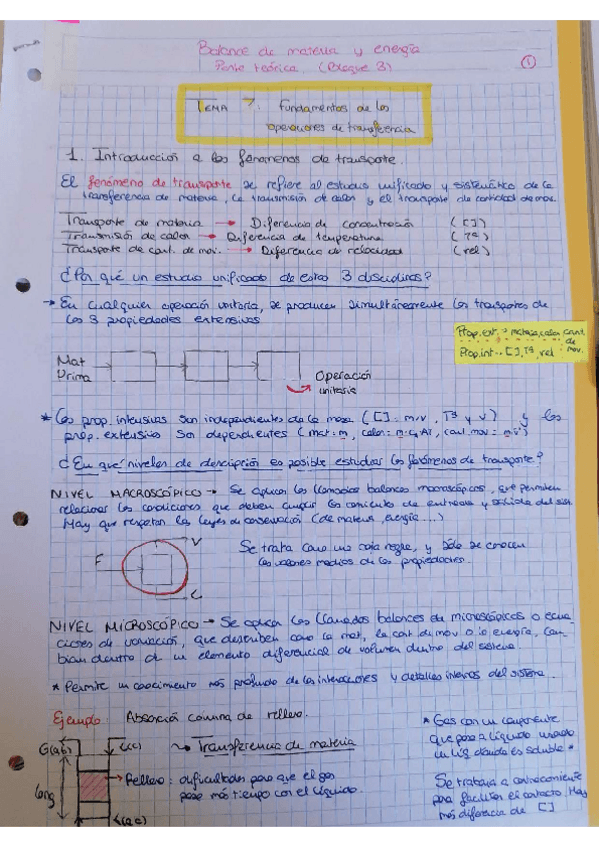 Balance de materia y energía
Parte teórica. (Bloque 3)
1
TEMA 7. Fundamentos de las
operaciones de transferencia
1. Introducción a los fenómenos de transporte.
El fenómeno de transporte se refiere al estudio unificado y sistemático de la
transferencia de materia, la transmisión de calor y el transporte de cantidad de mov.
Transporte de materia → Diferencia de concentración ([])
Transmisión de calor → Diferencia de temperatura (Tª)
Transporte de cant. de mov. → Diferencia de velocidad (vel)
¿Por qué un estudio unificado de estas 3 disciplinas?
→ En cualquier operación unitaria, se producen simultáneamente los transportes de
las 3 propiedades extensivas
Prop. ext. → materia, calor, cant. de mov.
Prop. int. → [], Tª, vel
Mat
Prima
Operación
unitaria
* Las prop. intensivas son independientes de la masa ([]: m/v, Tª y v) y las
prop. extensivas son dependientes (mat: m, calor: m·c, cant. mov: m·v)
¿En qué niveles de descripción es posible estudiar los fenómenos de transporte?
NIVEL MACROSCÓPICO → Se aplican los llamados balances macroscópicos, que permiten
relacionar las condiciones que deben cumplir las corrientes de entrada y salida del sist.
Hay que respetar las leyes de conservación (de materia, energía ...)
F
V
L
Se trata como una caja negra, y sólo se conocen
los valores medios de las propiedades.
NIVEL MICROSCÓPICO → Se aplica los llamados balances en microscópicos o ecua
ciones de variación, que describen como la mat, la cant. de mov o la energía, cam
bian dentro de un elemento diferencial de volumen dentro del sistema
* Permite un conocimiento más profundo de las interacciones y detalles internos del sistema.
Ejemplo Absorción columna de relleno.
G(a,b)
L(c)
Transferencia de materia
long
Relleno: dificultades para que el gas
pase más tiempo con el líquido.
L(a,c)
* Gas con un componente
que pasa a líquido usando
un líq donde es soluble *
Se trabaja a contracorriente
para facilitar el contacto. Hay
más diferencia de []